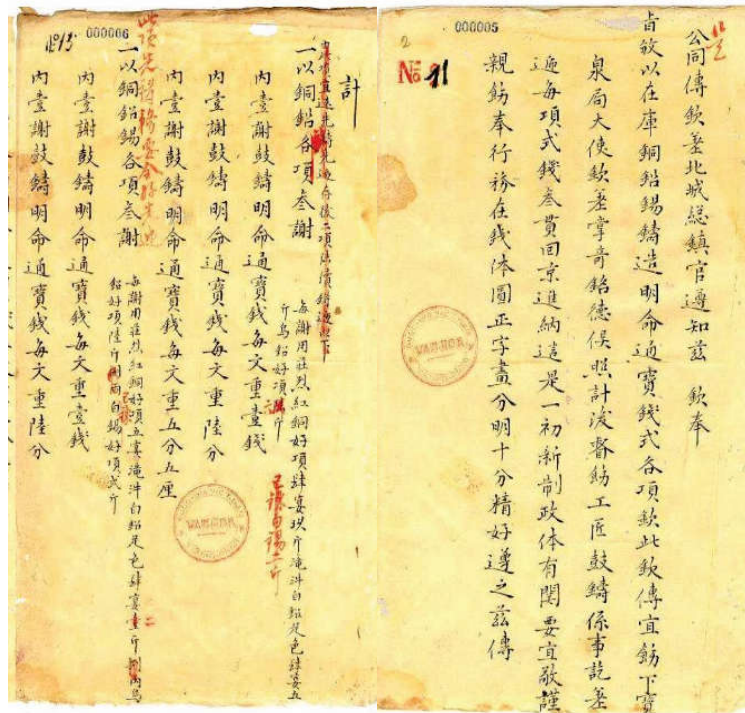 000005
2
No 91
公同傳欽差北城總鎮官遵知茲 欽奉
旨啟以在庫銅鉛錫鑄造明命通寶錢式各項欽此欽傳宜飭下寶
泉局大使欽差掌奇銘德侯照計後督飭工匠鼓鑄係事訖差
遞每項式錢叁貫回京進納這是一初新制政体有関要宜敬謹
親飭奉行務在錢体圓正字畫分明十分精好遵之茲傳
000006
計
一以銅鉛各項叁謝
每謝用莊烈紅銅好項肆寡玖斤淹汫白鉛足色肆寡五
斤烏鉛好項斤
已議白錫二斤
內壹謝鼓鑄明命通寶錢每文重壹錢
內壹謝鼓鑄明命通寶錢每文重陸分
內壹謝鼓鑄明命通寶錢每文重五分五厘
一以銅鉛錫各項叁謝
每謝用莊烈紅銅好項五寡淹汫白鉛足色肆寡壹斤捌両烏
鉛好項陸斤捌両白錫好項弍斤
內壹謝鼓鑄明命通寶錢每文重壹錢
內壹謝鼓鑄明命通寶錢每文重陸分